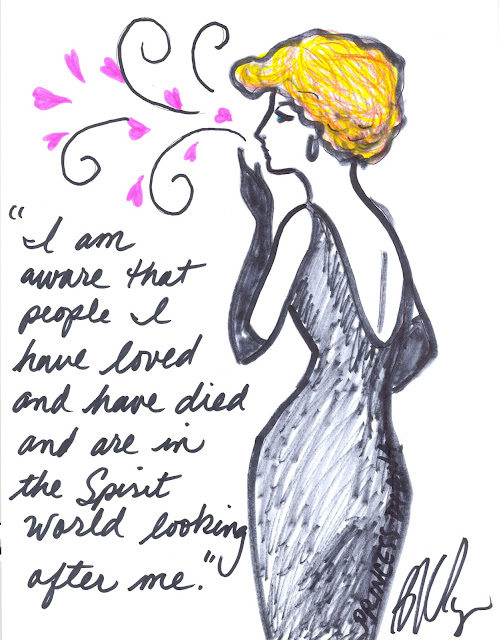 "I am
aware that
people I
have loved
and have died
and are in
the Spirit
world looking
after me."
PRINCESS